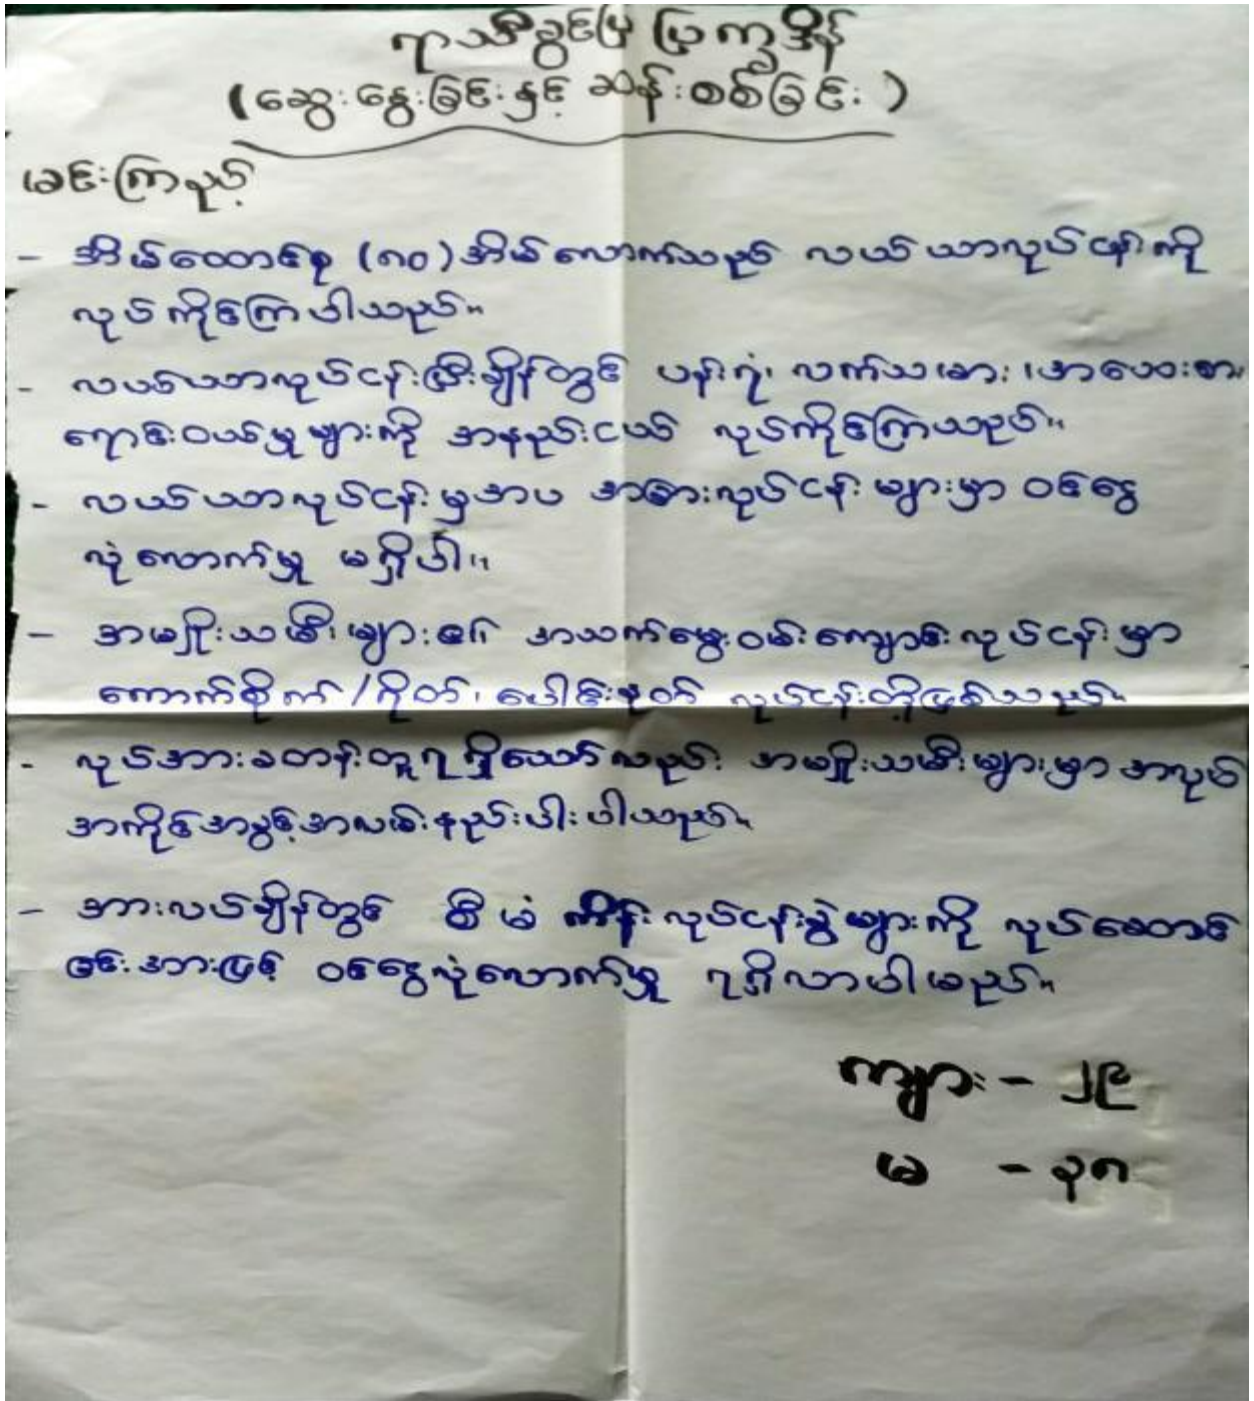 ရာသီခွင်ပြ ပြက္ခဒိန်
(ဆွေးနွေးခြင်းနှင့် ဆန်းစစ်ခြင်း)
မင်းကြာနည့်
- အိမ်ထောင်စု (၈၀) အိမ်လောက်သည် လယ်ယာလုပ်ငန်းကို
လုပ်ကိုင်ကြပါသည်။
- လယ်ယာလုပ်ငန်းပြီးချိန်တွင် ပန်းရံ၊ လက်သမား၊ အသေးစား
ရောင်းဝယ်မှုများကို အနည်းငယ် လုပ်ကိုင်ကြသည်။
- လယ်ယာလုပ်ငန်းမှအပ အခြားလုပ်ငန်းများမှာ ဝင်ငွေ
လုံလောက်မှု မရှိပါ။
- အမျိုးသမီးများ၏ အသက်မွေးဝမ်းကျောင်းလုပ်ငန်းမှာ
ကောက်စိုက်/ရိတ်၊ ပေါင်းနုတ် လုပ်ငန်းတို့ဖြစ်သည်။
- လုပ်အားခတန်းတူရရှိသော်လည်း အမျိုးသမီးများမှာ အလုပ်
အကိုင်အခွင့်အလမ်းနည်းပါးပါသည်။
- အားလပ်ချိန်တွင် စီမံကိန်းလုပ်ငန်းခွဲများကို လုပ်ဆောင်
ခြင်းအားဖြင့် ဝင်ငွေလုံလောက်မှု ရရှိလာပါမည်။
ကျား - ၂၉
မ - ၃၈